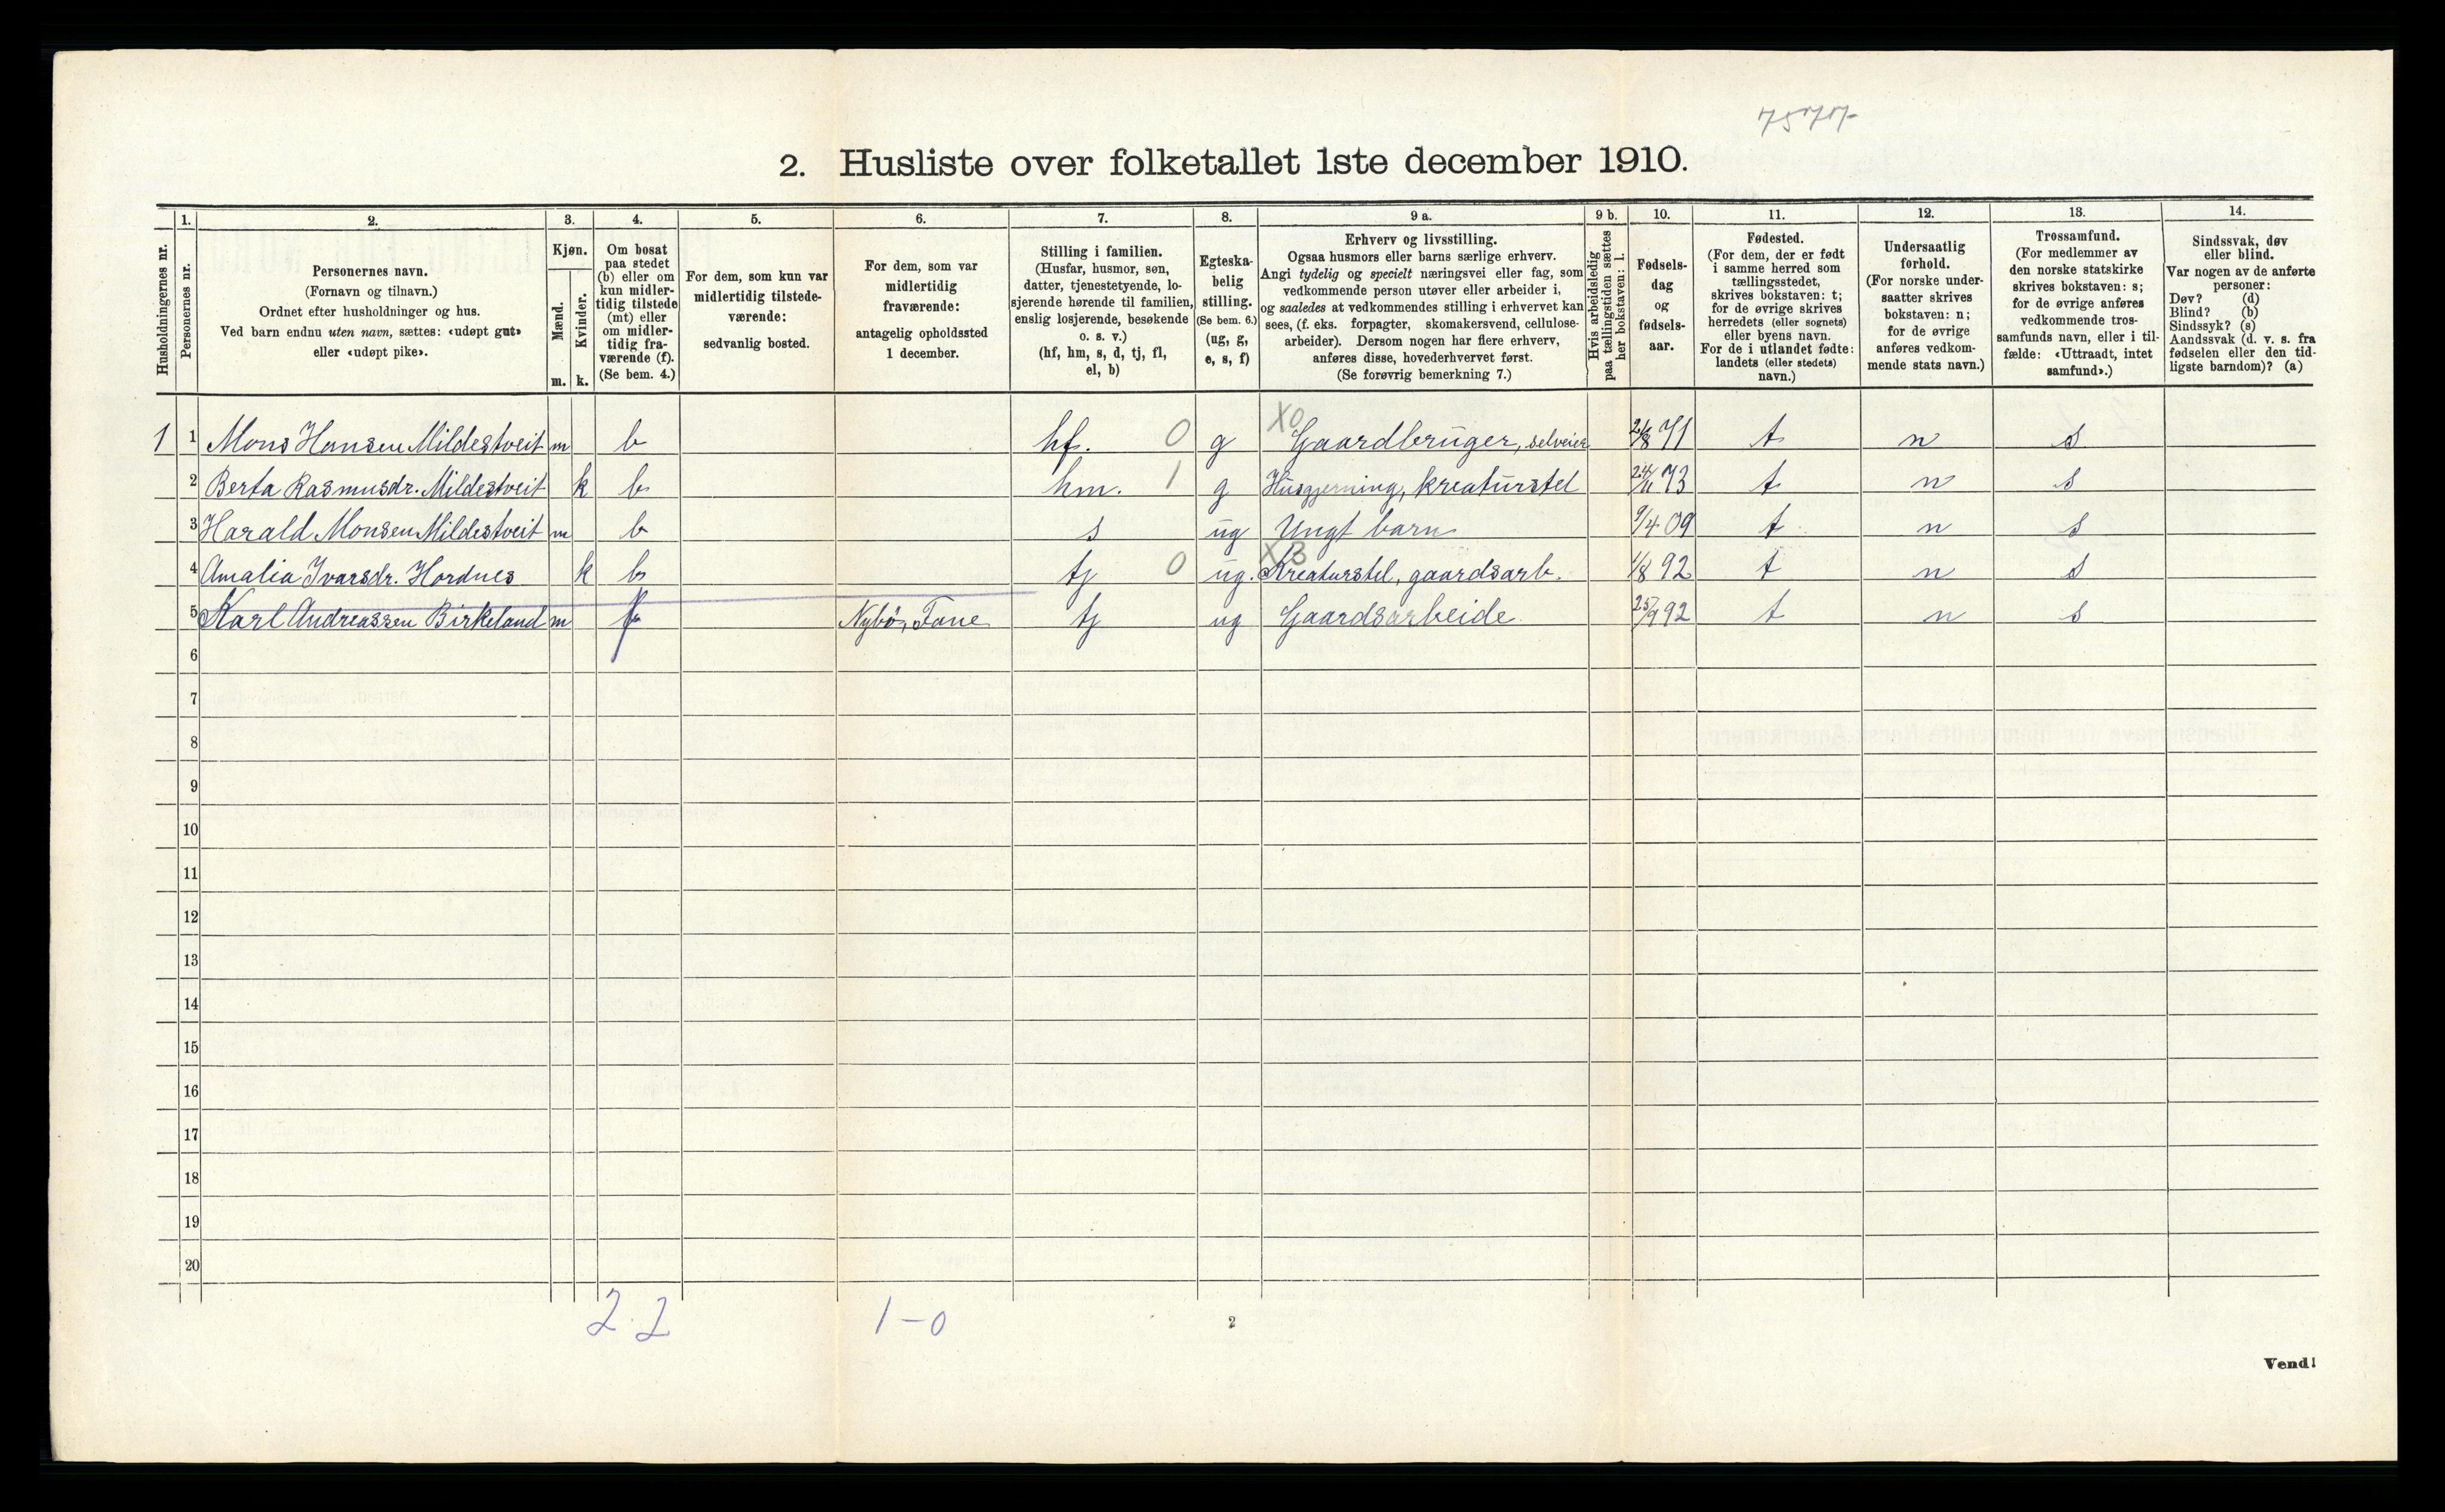 7577
2. Husliste over folketallet 1ste december 1910.
Husholdningernes nr.
1.
Personernes nr.
2.
Personernes navn.
(Fornavn og tilnavn.)
Ordnet efter husholdninger og hus.
Ved barn endnu uten navn, sættes: «udøpt gut»
eller «udøpt pike».
3.
Kjøn.
Mænd.
Kvinder.
m. k.
4.
Om bosat
paa stedet
(b) eller om
kun midler-
tidig tilstede
(mt) eller
om midler-
tidig fra-
værende (f).
(Se bem. 4.)
5.
For dem, som kun var
midlertidig tilstede-
værende:
sedvanlig bosted.
6.
For dem, som var
midlertidig
fraværende:
antagelig opholdssted
1 december.
7.
Stilling i familien.
(Husfar, husmor, søn,
datter, tjenestetyende, lo-
sjerende hørende til familien,
enslig losjerende, besøkende
o. s. v.)
(hf, hm, s, d, tj, fl,
el, b)
8.
Egteska-
belig
stilling.
(Se bem. 6.)
(ug, g,
e, s, f)
9 a.
Erhverv og livsstilling.
Ogsaa husmors eller barns særlige erhverv.
Angi tydelig og specielt næringsvei eller fag, som
vedkommende person utøver eller arbeider i,
og saaledes at vedkommendes stilling i erhvervet kan
sees, (f. eks. forpagter, skomakersvend, cellulose-
arbeider). Dersom nogen har flere erhverv,
anføres disse, hovederhvervet først.
(Se forøvrig bemerkning 7.)
9 b.
Hvis arbeidsledig
paa tællingstiden sættes
her bokstaven: l.
10.
Fødsels-
dag
og
fødsels-
aar.
11.
Fødested.
(For dem, der er født
i samme herred som
tællingsstedet,
skrives bokstaven: t;
for de øvrige skrives
herredets (eller sognets)
eller byens navn.
For de i utlandet fødte:
landets (eller stedets)
navn.)
12.
Undersaatlig
forhold.
(For norske under-
saatter skrives
bokstaven: n;
for de øvrige
anføres vedkom-
mende stats navn.)
13.
Trossamfund.
(For medlemmer av
den norske statskirke
skrives bokstaven: s;
for de øvrige anføres
vedkommende tros-
samfunds navn, eller i til-
fælde: «Uttraadt, intet
samfund».)
14.
Sindssvak, døv
eller blind.
Var nogen av de anførte
personer:
Døv? (d)
Blind? (b)
Sindssyk? (s)
Aandssvak (d. v. s. fra
fødselen eller den tid-
ligste barndom)? (a)
1 1 Mons Hansen Mildestveit m b hf. 0 g X0 Gaardbruger, selveier 2/8 71 t n s
2 Berta Rasmusdr. Mildestveit k b hm. 1 g Husgjerning, kreaturstel 24/11 73 t n s
3 Harald Monsen Mildestveit m b s ug Ungt barn 9/4 09 t n s
4 Amalia Ivarsdr. Hordnes k b tj 0 ug. X3 Kreaturstel, gaardsarb. 1/8 92 t n s
5 Karl Andreassen Birkeland m f Nybø, Fane tj ug Gaardsarbeide 25/9 92 t n s
6
7
8
9
10
11
12
13
14
15
16
17
18
19
20
2.2 1-0
2
Vend!